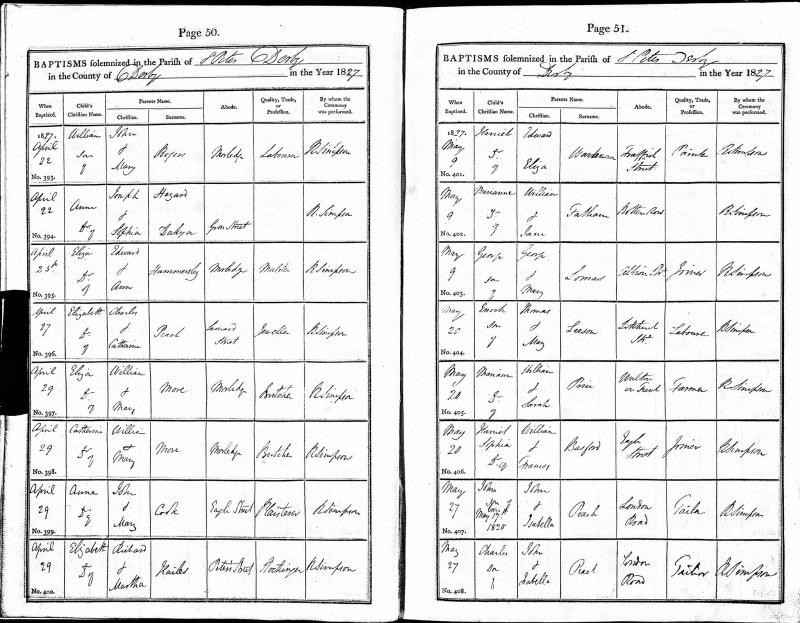 Page 50.
BAPTISMS solemnized in the Parish of St Peter Derby
in the County of Derby in the Year 1827
When Baptized. Child's Christian Name. Parents Name. Christian. Surname. Abode. Quality, Trade, or Profession. By whom the Ceremony was performed.
1827. April 22 No. 393. William Son of John & Mary Rogers Morledge Labourer R Simpson
April 22 No. 394. Anne Dr of Joseph Hagard & Sophia Dakyn Street R. Simpson
April 25th No. 395. Eliza Dr of Edward & Ann Hammersley Morledge Maltster R Simpson
April 27 No. 396. Elizabeth Dr of Charles & Catherine Peach Street Jeweller R Simpson
April 29 No. 397. Eliza Dr of William & Mary More Morledge Butcher R Simpson
April 29 No. 398. Catherine Dr of William & Mary More Morledge Butcher R Simpson
April 29 No. 399. Anna Dr of John & Mary Cook Eagle Street Plaisterer R Simpson
April 29 No. 400. Elizabeth Dr of Richard & Martha Hailes Peters Street R Simpson
Page 51.
BAPTISMS solemnized in the Parish of St Peter Derby
in the County of Derby in the Year 1827
When Baptized. Child's Christian Name. Parents Name. Christian. Surname. Abode. Quality, Trade, or Profession. By whom the Ceremony was performed.
1827. May 9 No. 401. Harriet Dr of Edward & Eliza Street Painter R Simpson
May 9 No. 402. Marianne Dr of William & Jane Fatham Rotten Row R Simpson
May 9 No. 403. George son of George & Mary Lomas Joiner R Simpson
May 20 No. 404. Enoch son of Thomas & Mary Leeson Labourer R Simpson
May 20 No. 405. Dr of William & Sarah Price Farmer R Simpson
May 20 No. 406. Harriet Sophia Dr of William & Frances Basford Eagle Street Joiner R Simpson
May 27 No. 407. John son of born May 17th 1820 John & Isabella Peach London Road Tailor R Simpson
May 27 No. 408. Charles son of John & Isabella Peach London Road Tailor R Simpson